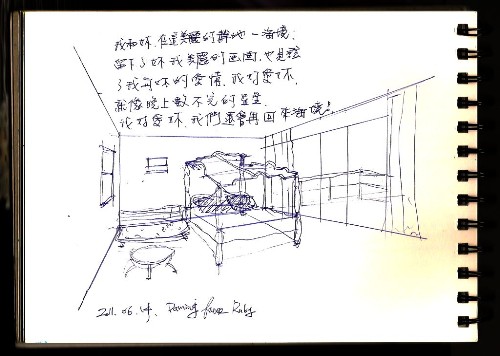 我和妳,在這美麗的聖地—海境,
留下了妳我美麗的画面,也見証
了我對妳的愛情,我好愛妳,
就像晚上數不完的星星,
我好愛妳,我們還會再回來海境!
2011.06.04. Paming from Ruby